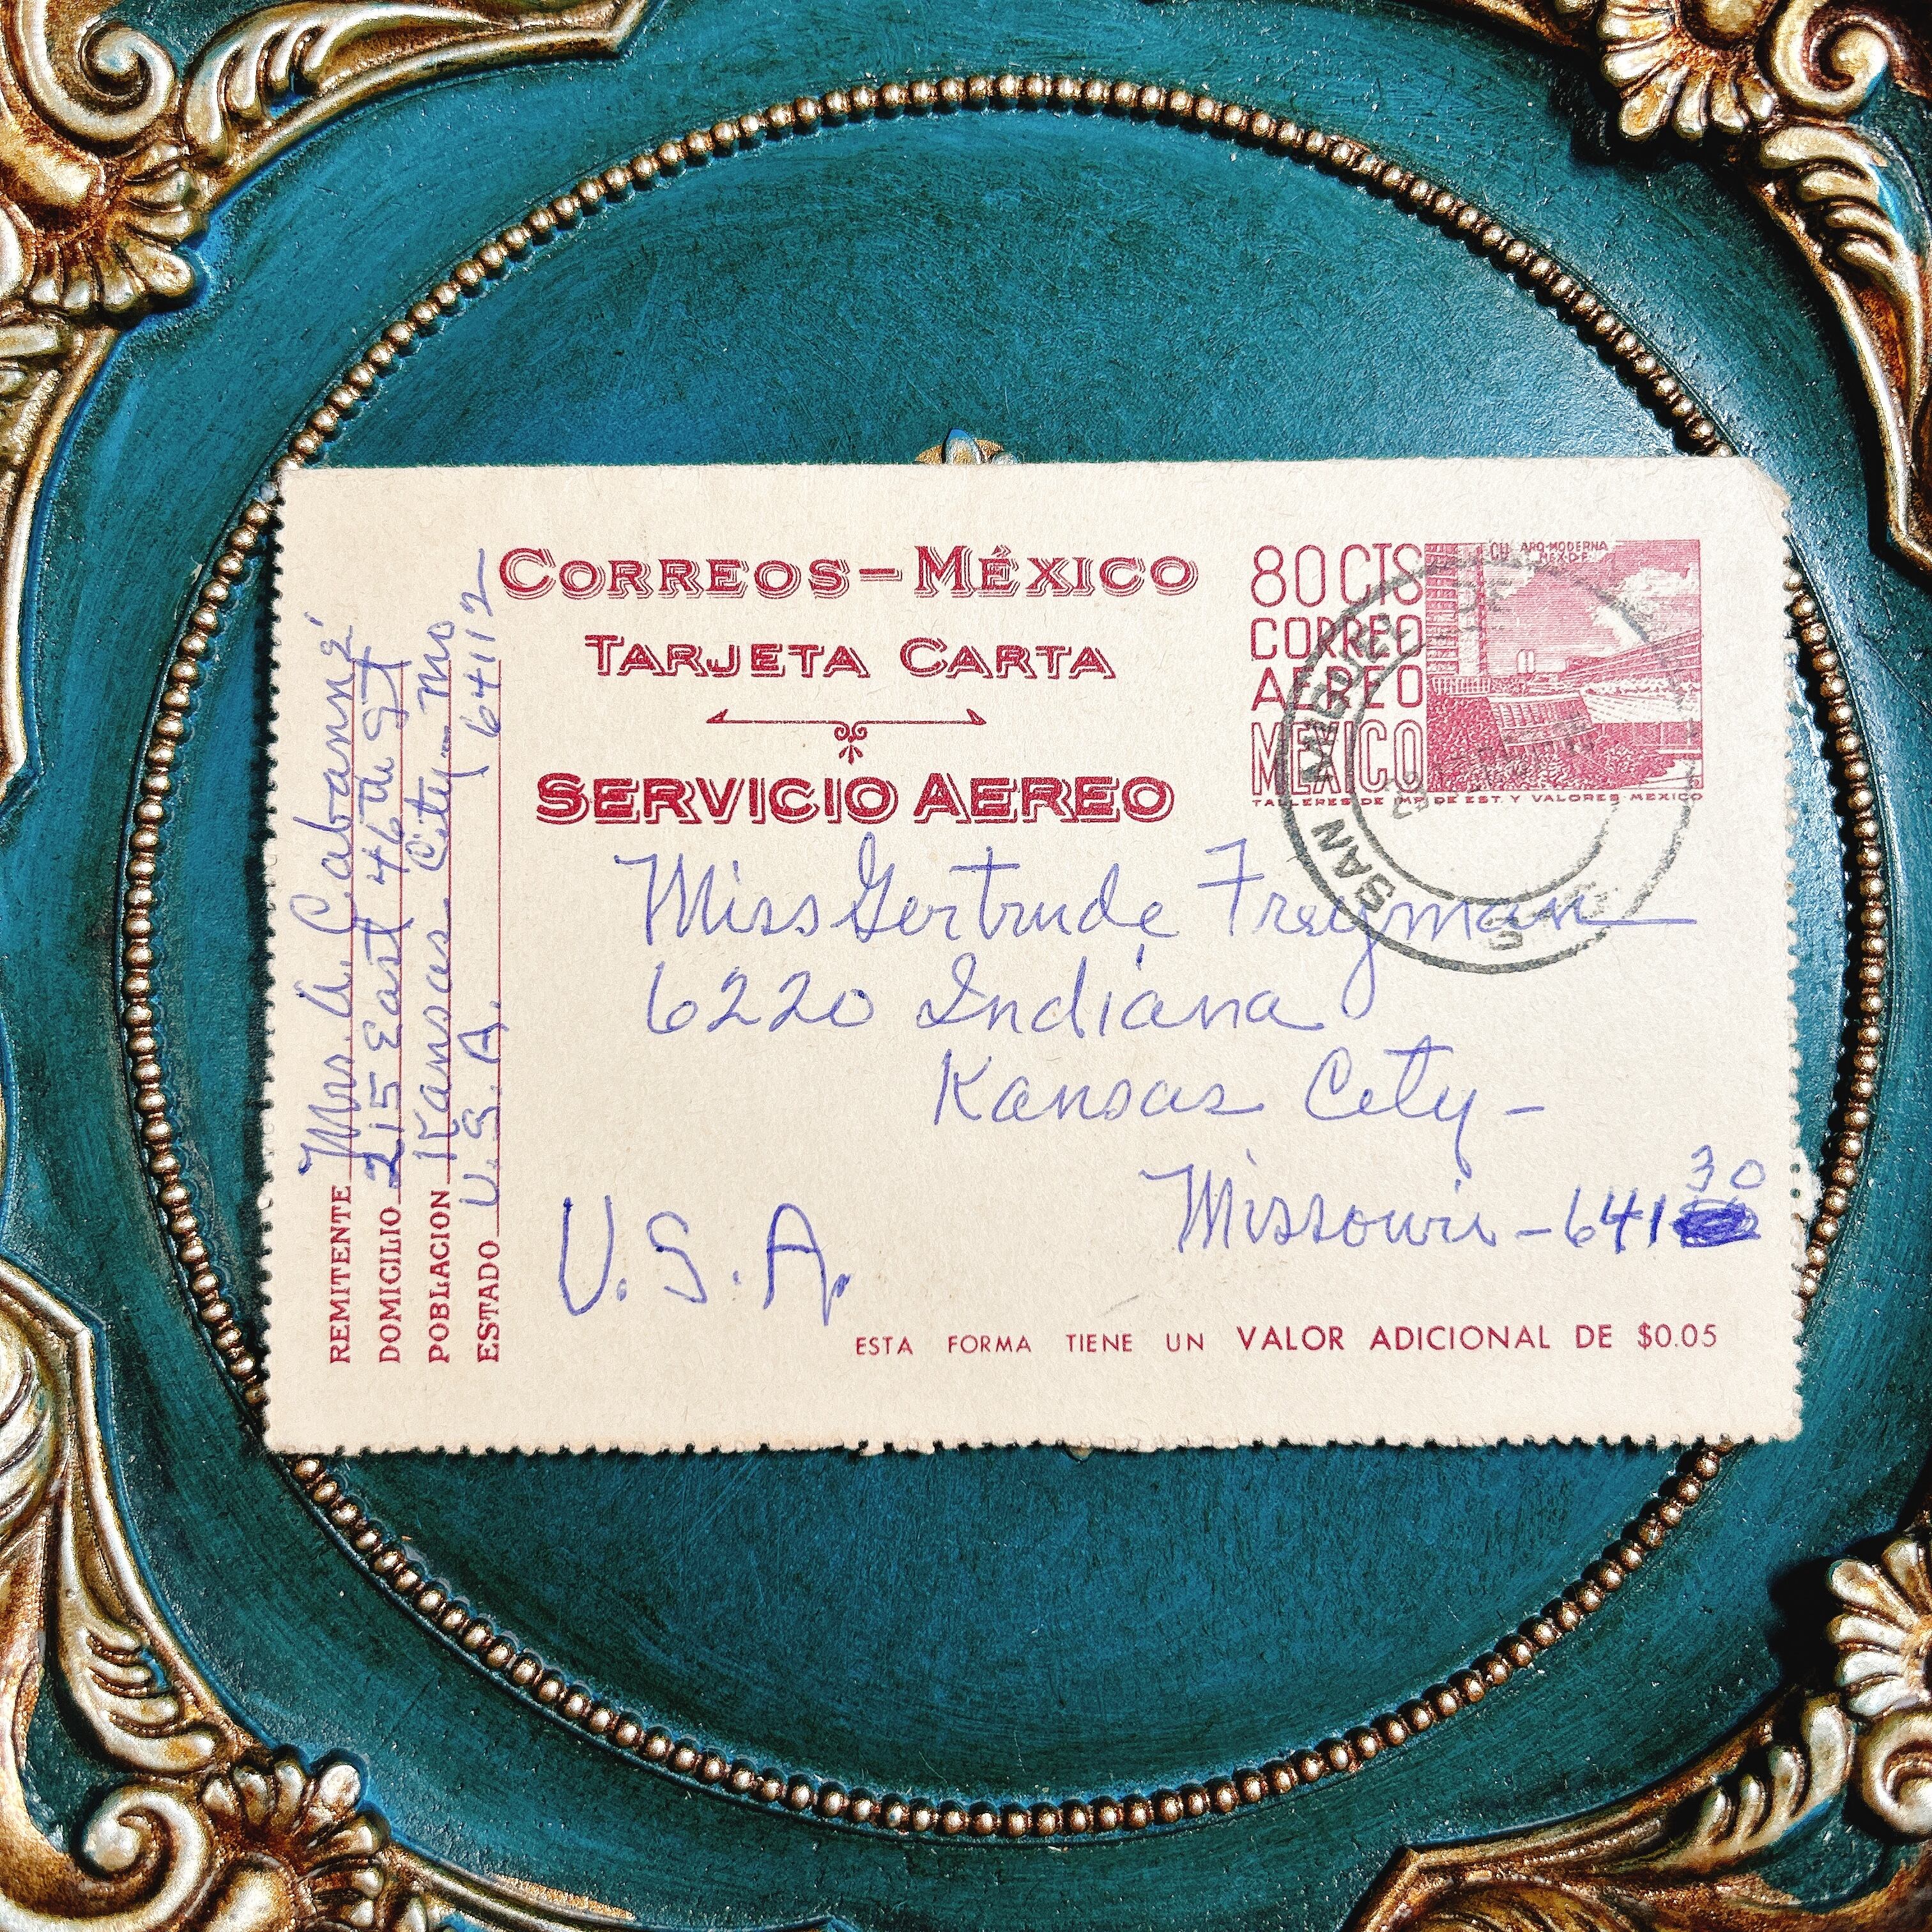 CORREOS–MÉXICO
TARJETA CARTA
SERVICIO AEREO
80 CTS
CORREO
AEREO
MEXICO
CU ARQ-MODERNA
MEX-D-F
TALLERES DE IMP. DE EST. Y VALORES-MEXICO
SAN
Miss Gertrude Freyman
6220 Indiana
Kansas City –
Missouri – 641
30
U.S.A.
ESTA FORMA TIENE UN VALOR ADICIONAL DE $0.05
REMITENTE Mrs. A. Cabanné
DOMICILIO 215 East 46th ST
POBLACION Kansas City – Mo
ESTADO U.S.A. 64112